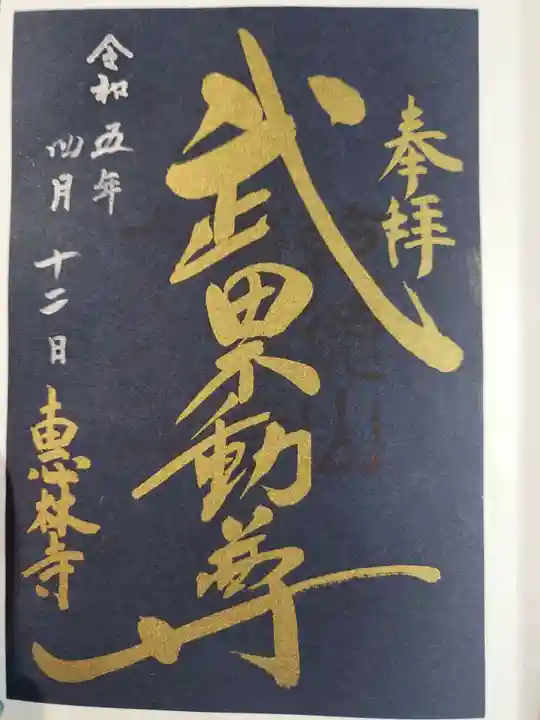 奉拝
武田不動尊
令和五年
四月十二日
恵林寺